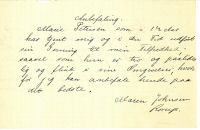 Anbefaling.
Marie Petersen som i 1½ Aar
har tjent mig og i den Tid udført
sin Gerning til min Tilfredshed,
saavel som hun er tro og paalidelig
og flink i sine Omgivelser, hvor-
for jeg kan anbefale hende paa
det bedste.
Maren Johnsen